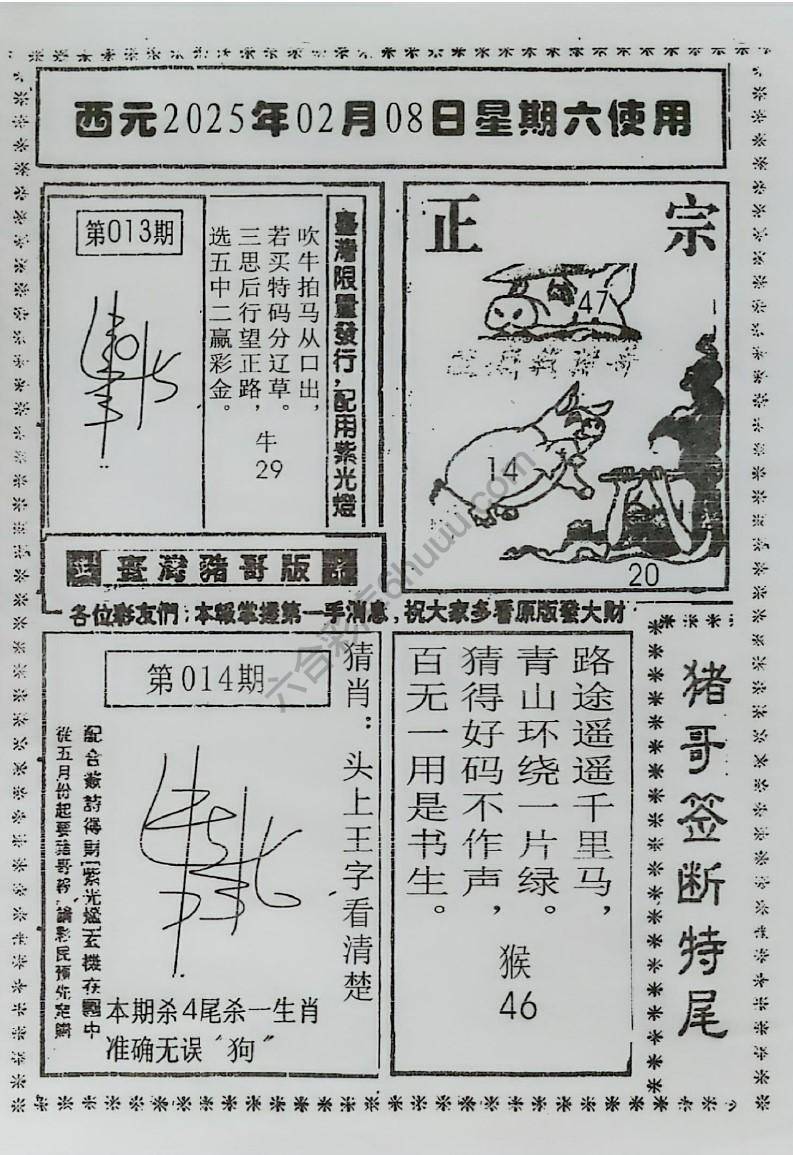 西元2025年02月08日星期六使用
第013期
臺灣限量發行，配用紫光燈
吹牛拍马从口出，
若买特码分辽草。
三思后行望正路，
选五中二赢彩金。
牛
29
正宗
47
14
20
臺灣豬哥版
各位彩友們：本報掌握第一手消息，祝大家多看原版發大財
第014期
猜肖：头上王字看清楚
配合截詩得財[紫光燈]玄機在圖中
從五月份起要豬哥報，請彩民預先定購
本期杀4尾杀一生肖
准确无误“狗”
路途遥遥千里马，
青山环绕一片绿。
猜得好码不作声，
百无一用是书生。
猴
46
猪哥签断特尾
六合彩虎6huuu.com